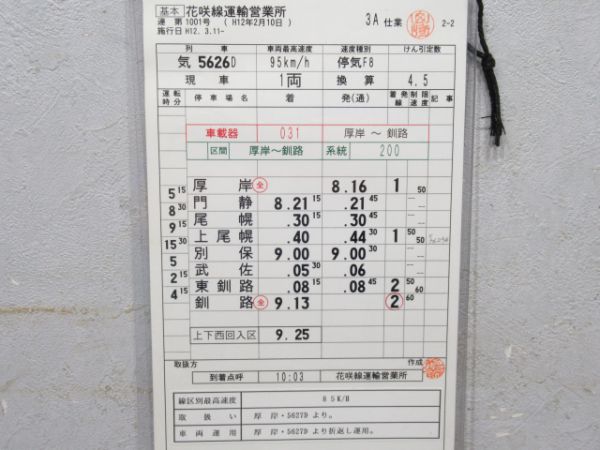 基本 花咲線運輸営業所
運 第1001号 ( H12年2月10日 ) 3A 仕業 2-2
施行日H12. 3.11-
列 車 車両最高速度 速度種別 けん引定数
気 5626D 95km/h 停気F8
現 車 1両 換 算 4.5
運転時分 停 車 場 名 着 発(通) 着発線 制限速度 記 事
車載器 031 厚岸 〜 釧路
区間 厚岸〜釧路 系統 200
厚 岸 全 8.16 1 50
5 15 門 静 8.21 15 .21 45
8 30 尾 幌 .30 15 .30 45
9 15 上尾幌 .40 .44 30 1 50 50
15 30 別 保 9.00 9.00 30
5 武 佐 .05 30 .06
2 15 東釧路 .08 15 .08 45 2 50 60
4 15 釧 路 全 9.13 2 60
上下西回入区 9.25
取扱方 作成
到着点呼 10:03 花咲線運輸営業所
線区別最高速度 85K/H
取 扱 い 厚 岸・5627D より。
車 両 運 用 厚 岸・5627D より折返し運用。